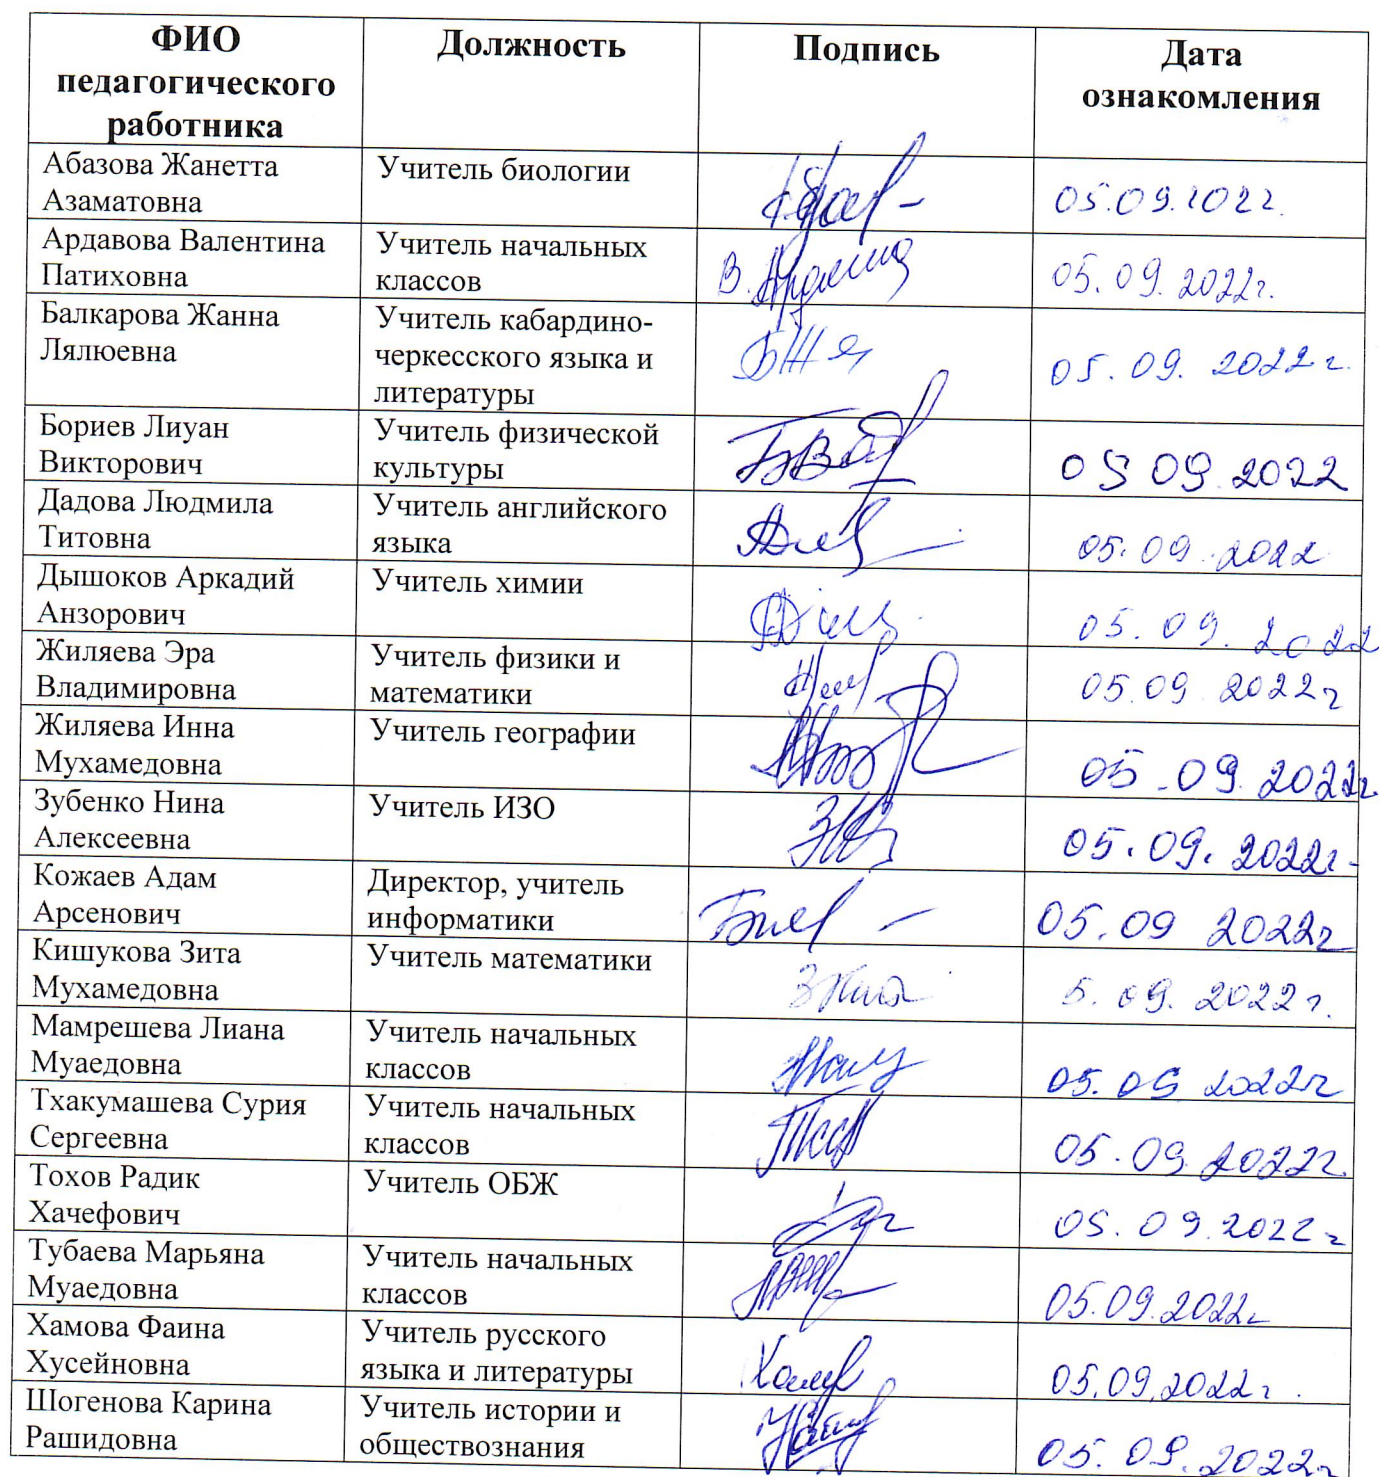 ФИО
педагогического
работника
Должность
Подпись
Дата
ознакомления
Абазова Жанетта
Азаматовна
Учитель биологии
05.09.2022
Ардавова Валентина
Патиховна
Учитель начальных
классов
05.09.2022г.
Балкарова Жанна
Лялюевна
Учитель кабардино-
черкесского языка и
литературы
БЖЛ
05.09. 2022 г.
Бориев Лиуан
Викторович
Учитель физической
культуры
05 09.2022
Дадова Людмила
Титовна
Учитель английского
языка
05.09.2022
Дышоков Аркадий
Анзорович
Учитель химии
05.09.2022
Жиляева Эра
Владимировна
Учитель физики и
математики
05.09 2022г
Жиляева Инна
Мухамедовна
Учитель географии
05.09.2022г
Зубенко Нина
Алексеевна
Учитель ИЗО
05.09.2022г
Кожаев Адам
Арсенович
Директор, учитель
информатики
05.09 2022г
Кишукова Зита
Мухамедовна
Учитель математики
5.09.2022г.
Мамрешева Лиана
Муаедовна
Учитель начальных
классов
05.09 2022г
Тхакумашева Сурия
Сергеевна
Учитель начальных
классов
05.09.2022г
Тохов Радик
Хачефович
Учитель ОБЖ
05.09.2022 г
Тубаева Марьяна
Муаедовна
Учитель начальных
классов
05.09.2022г
Хамова Фаина
Хусейновна
Учитель русского
языка и литературы
05.09.2022г.
Шогенова Карина
Рашидовна
Учитель истории и
обществознания
05.09.2022г